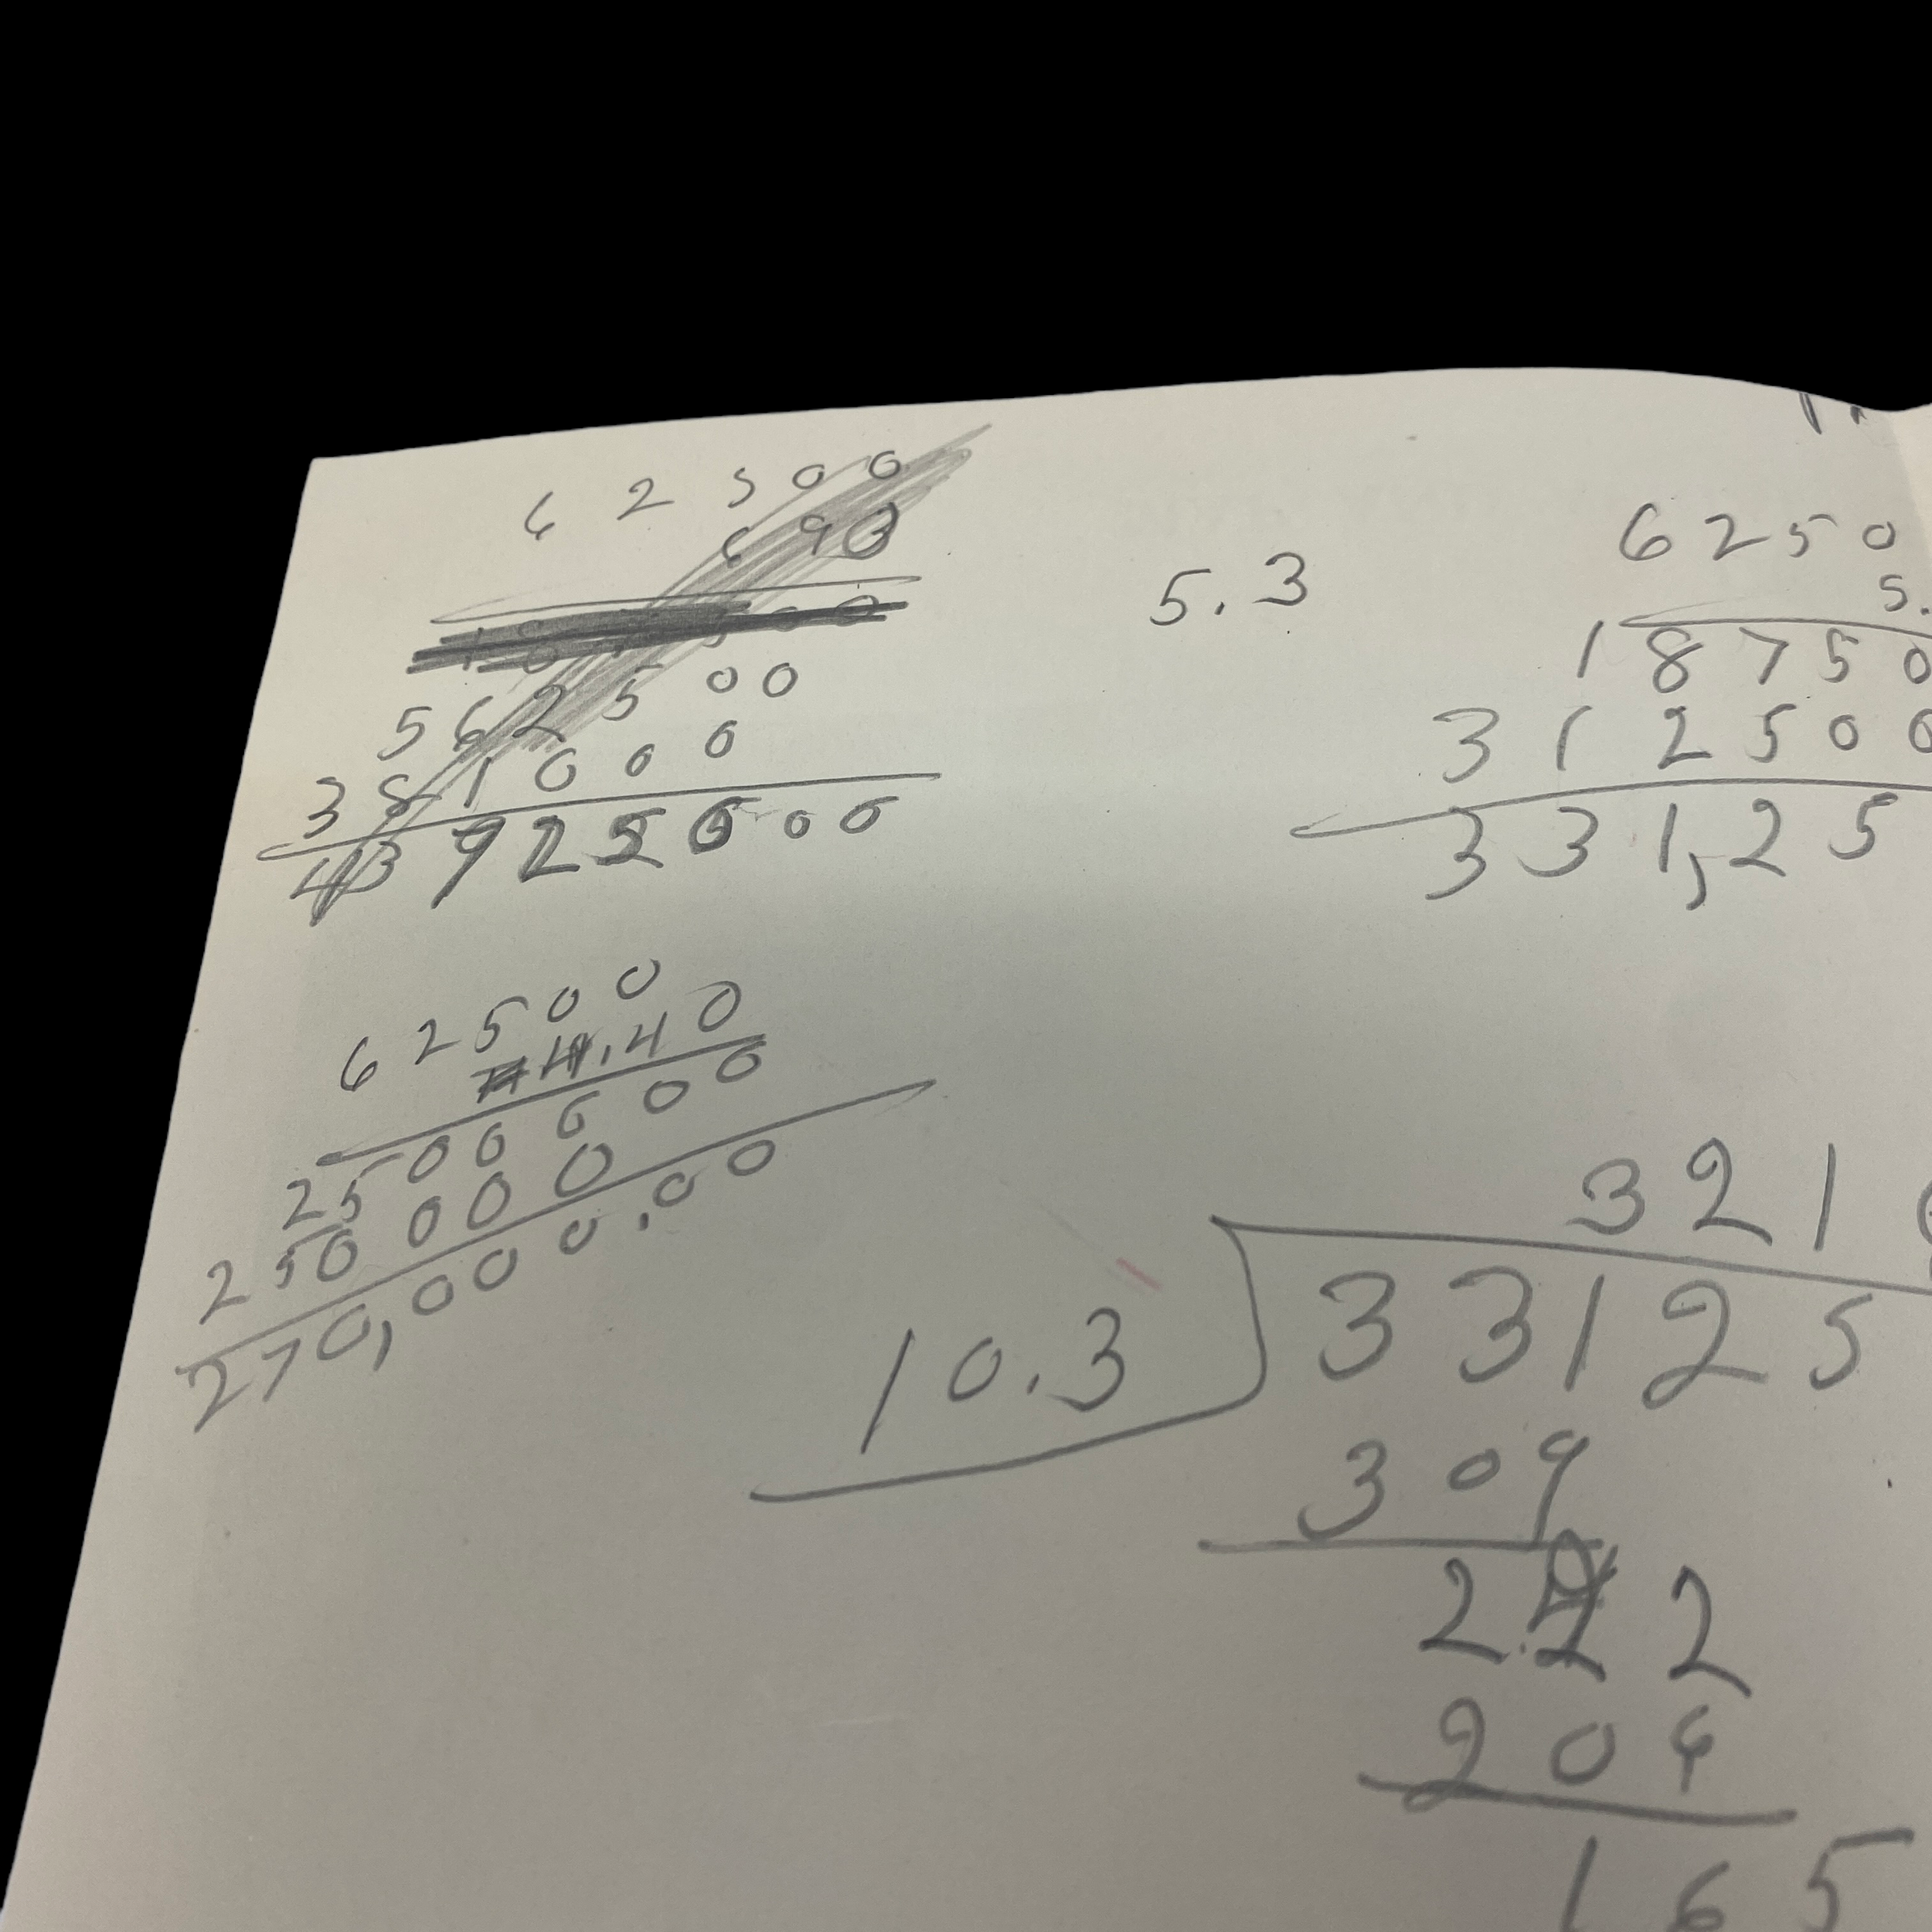 62500
690
562500
381000
43922500
5.3
6250
5.
18750
312500
331,25
62500
4.40
2500000
250000
270,000.00
321
10.3
33125
309
222
206
165